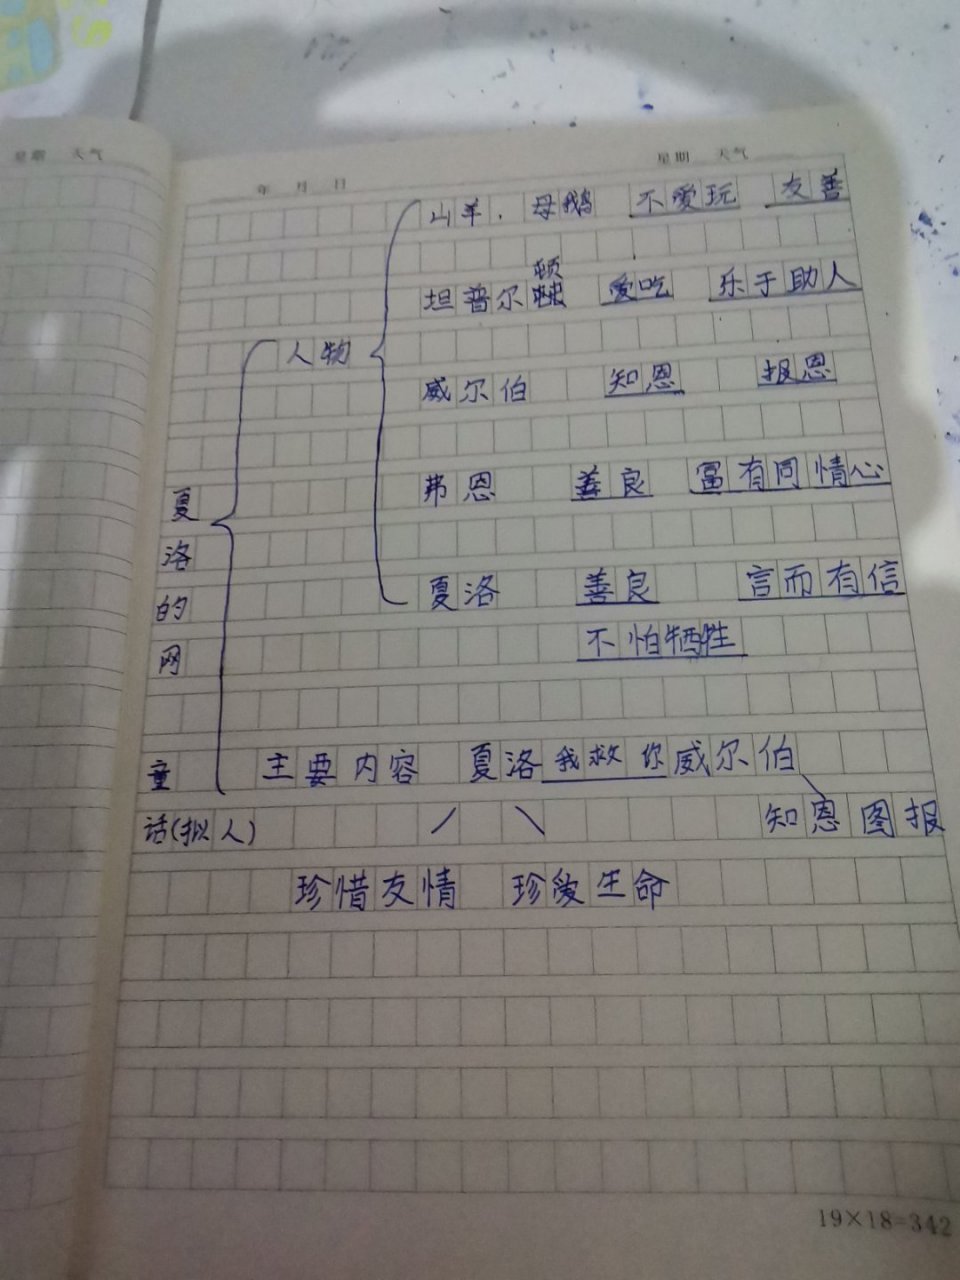 星期 天气
年 月 日 星期 天气
山羊，母鹅 不爱玩 友善
顿
坦普尔 爱吃 乐于助人
人物
威尔伯 知恩 报恩
弗恩 善良 富有同情心
夏洛的网
夏洛 善良 言而有信
不怕牺牲
童话(拟人)
主要内容 夏洛我救你威尔伯
知恩图报
珍惜友情 珍爱生命
19×18=342